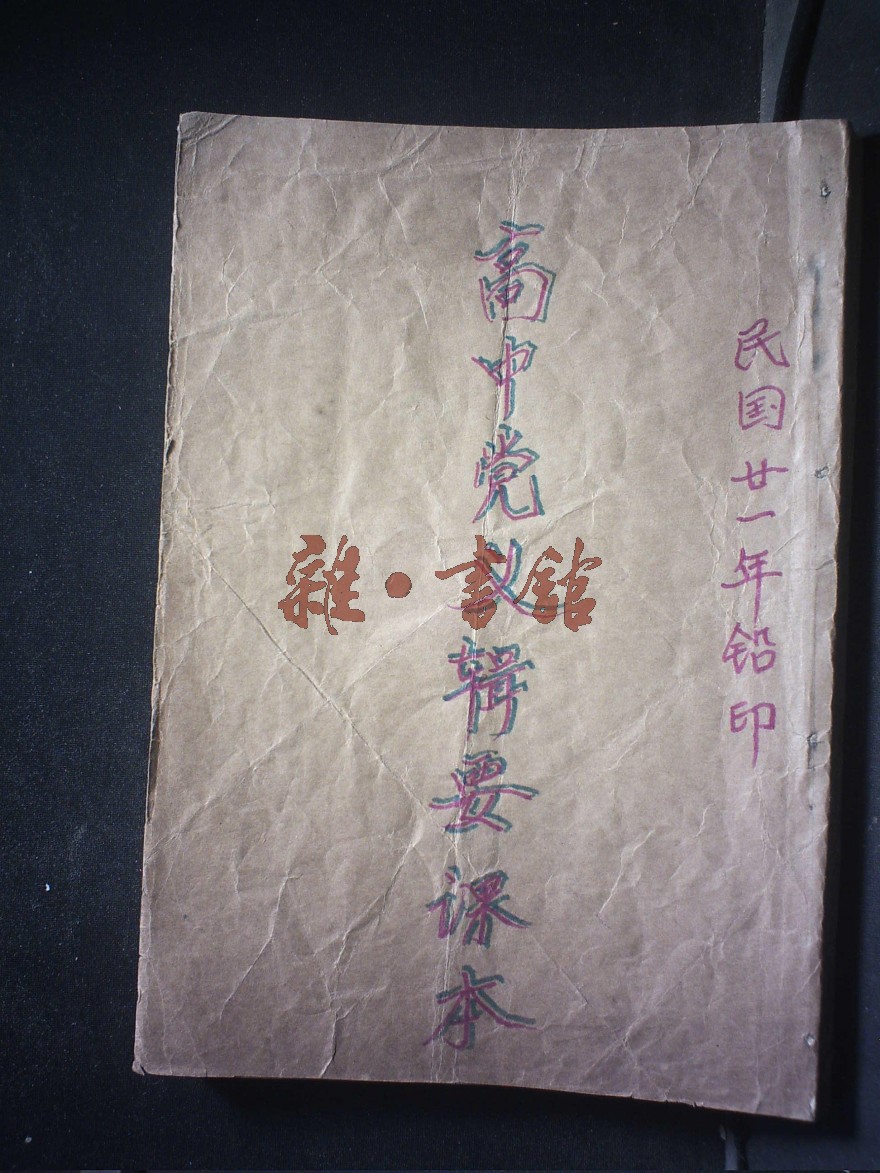 民国廿一年铅印
高中党义辑要课本
雜·書館